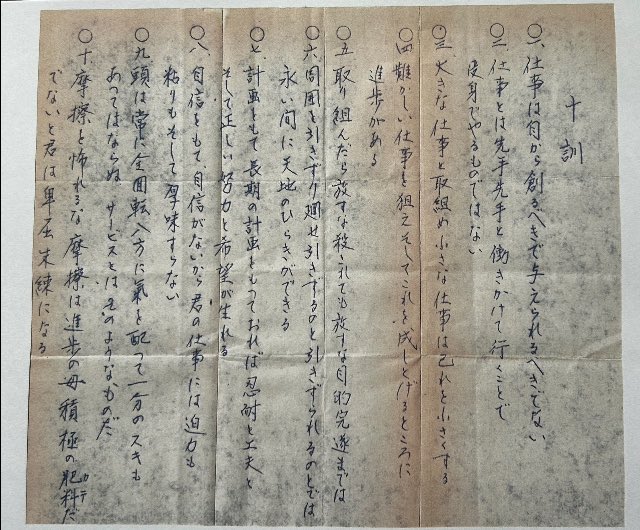 十訓
〇一、仕事は自から創るべきで与えられるべきでない
〇二、仕事とは先手先手と働きかけて行くことで
受身でやるものではない
〇三、大きな仕事と取組め小さな仕事は己れを小さくする
〇四難かしい仕事を狙えそしてこれを成しとげるところに
進歩がある
〇五取り組んだら放すな殺されても放すな目的完遂までは
〇六周囲を引きずり廻せ引きずるのと引きずられるのとでは
永い間に天地のひらきができる
〇七計画をもて長期の計画をもっておれば忍耐と工夫と
そして正しい努力と希望が生れる
〇八自信をもて、自信がないから君の仕事には迫力も
粘りもそして厚味すらない
〇九頭は常に全回転八方に気を配って一分のスキも
あってはならぬ サービスとはそのようなものだ
〇十摩擦を怖れるな摩擦は進歩の母積極の肥料だ
でないと君は卑屈未練になる